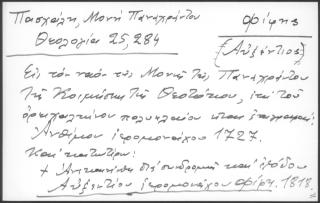 Πασχάλη, Μονή Παναχράντου
Θεολογία 25, 284
Φίφης
(Αὐξέντιος)
Εἰς τὸν ναὸν τῆς Μονῆς τῆς Παναχράντου
τῆς Κοιμήσεως τῆς Θεοτόκου, ἐπὶ τοῦ
ὀρειχαλκίνου πολυελαίου ὑπάρχει ἐπιγραφή:
Ἀνθίμου ἱερομονάχου 1727.
Καὶ κατωτέρω:
+ Ἀνεκαινίσθη διὰ συνδρομῆς καὶ ἐξόδου
Αὐξεντίου ἱερομονάχου Φίφη. 1818.